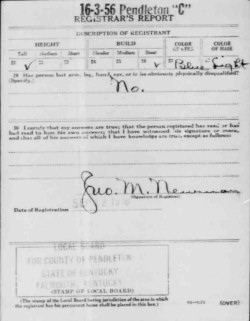 16-3-56 Pendleton "C"
REGISTRAR'S REPORT
DESCRIPTION OF REGISTRANT
HEIGHT BUILD COLOR OF EYES COLOR OF HAIR
Tall Medium Short Slender Medium Stout
Blue Light
29 Has person lost arm, leg, hand, eye, or is he obviously physically disqualified?
(Specify.)
No.
30 I certify that my answers are true; that the person registered has read or has
had read to him his own answers; that I have witnessed his signature or mark,
and that all of his answers of which I have knowledge are true, except as follows:
Geo. M. Newman
(Signature of Registrar)
Date of Registration
LOCAL BOARD
FOR COUNTY OF PENDLETON
STATE OF KENTUCKY
FALMOUTH, KENTUCKY
(STAMP OF LOCAL BOARD)
(The stamp of the Local Board having jurisdiction of the area in which
the registrant has his permanent home shall be placed in this box.)
(OVER)